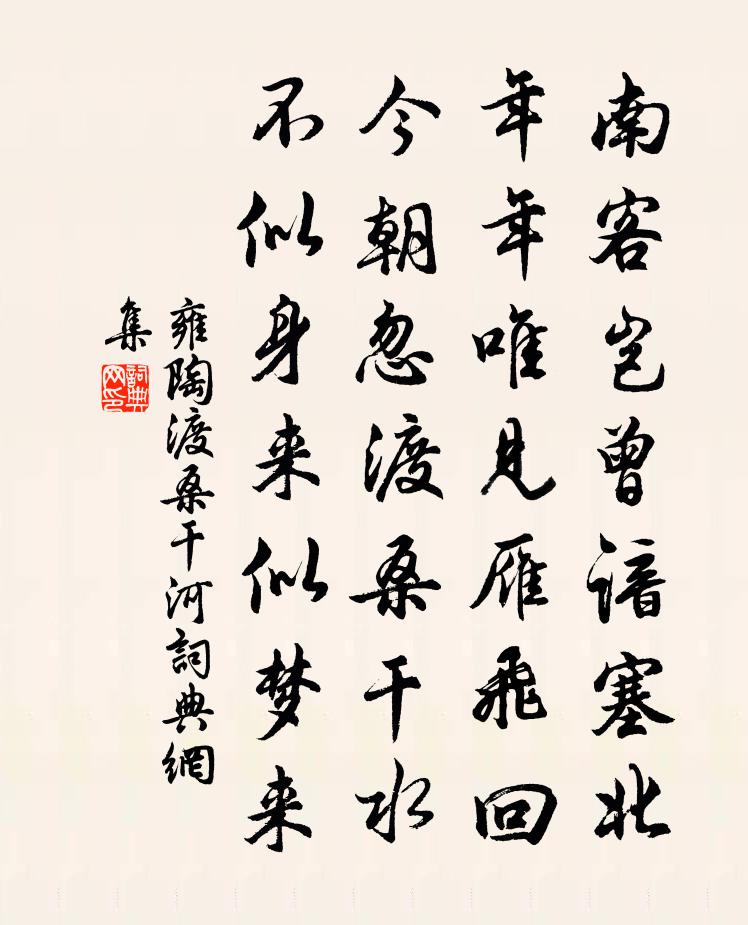 南客岂曾谙塞北
年年唯见雁飞回
今朝忽渡桑干水
不似身来似梦来
雍陶渡桑干河詞典網
集
詞典
网印